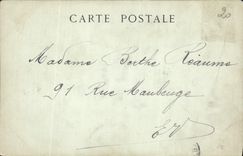 20
CARTE POSTALE
Madame Berthe Réaume
91 Rue Maubeuge
E V